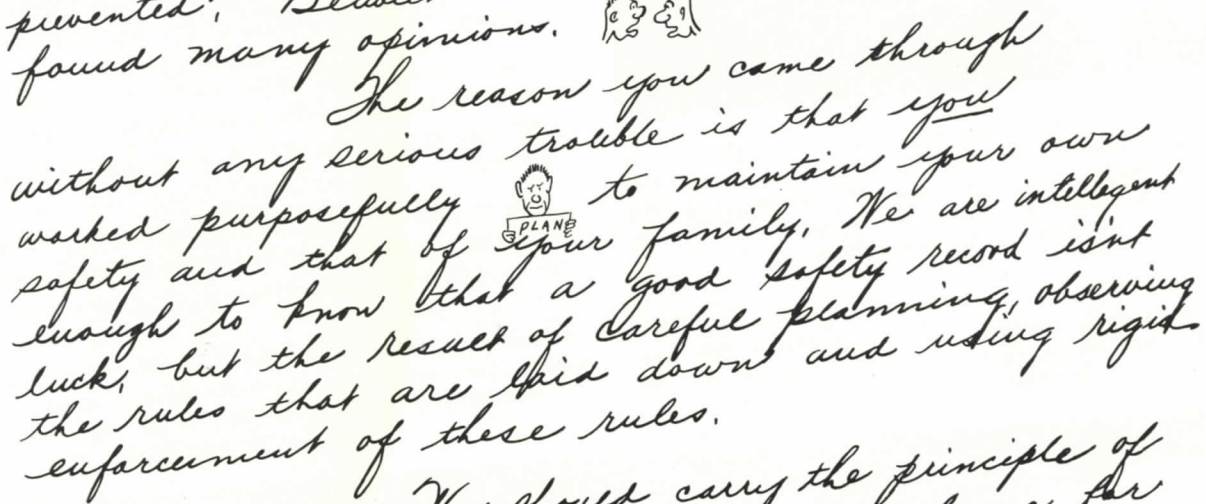 prevented?
found many opinions.
The reason you came through
without any serious trouble is that you
worked purposefully to maintain your own
PLAN
safety and that of your family. We are intellegent
enough to know that a good safety record isn't
luck, but the result of careful planning, observing
the rules that are laid down and using rigid
enforcement of these rules.
We should carry the principle of
for